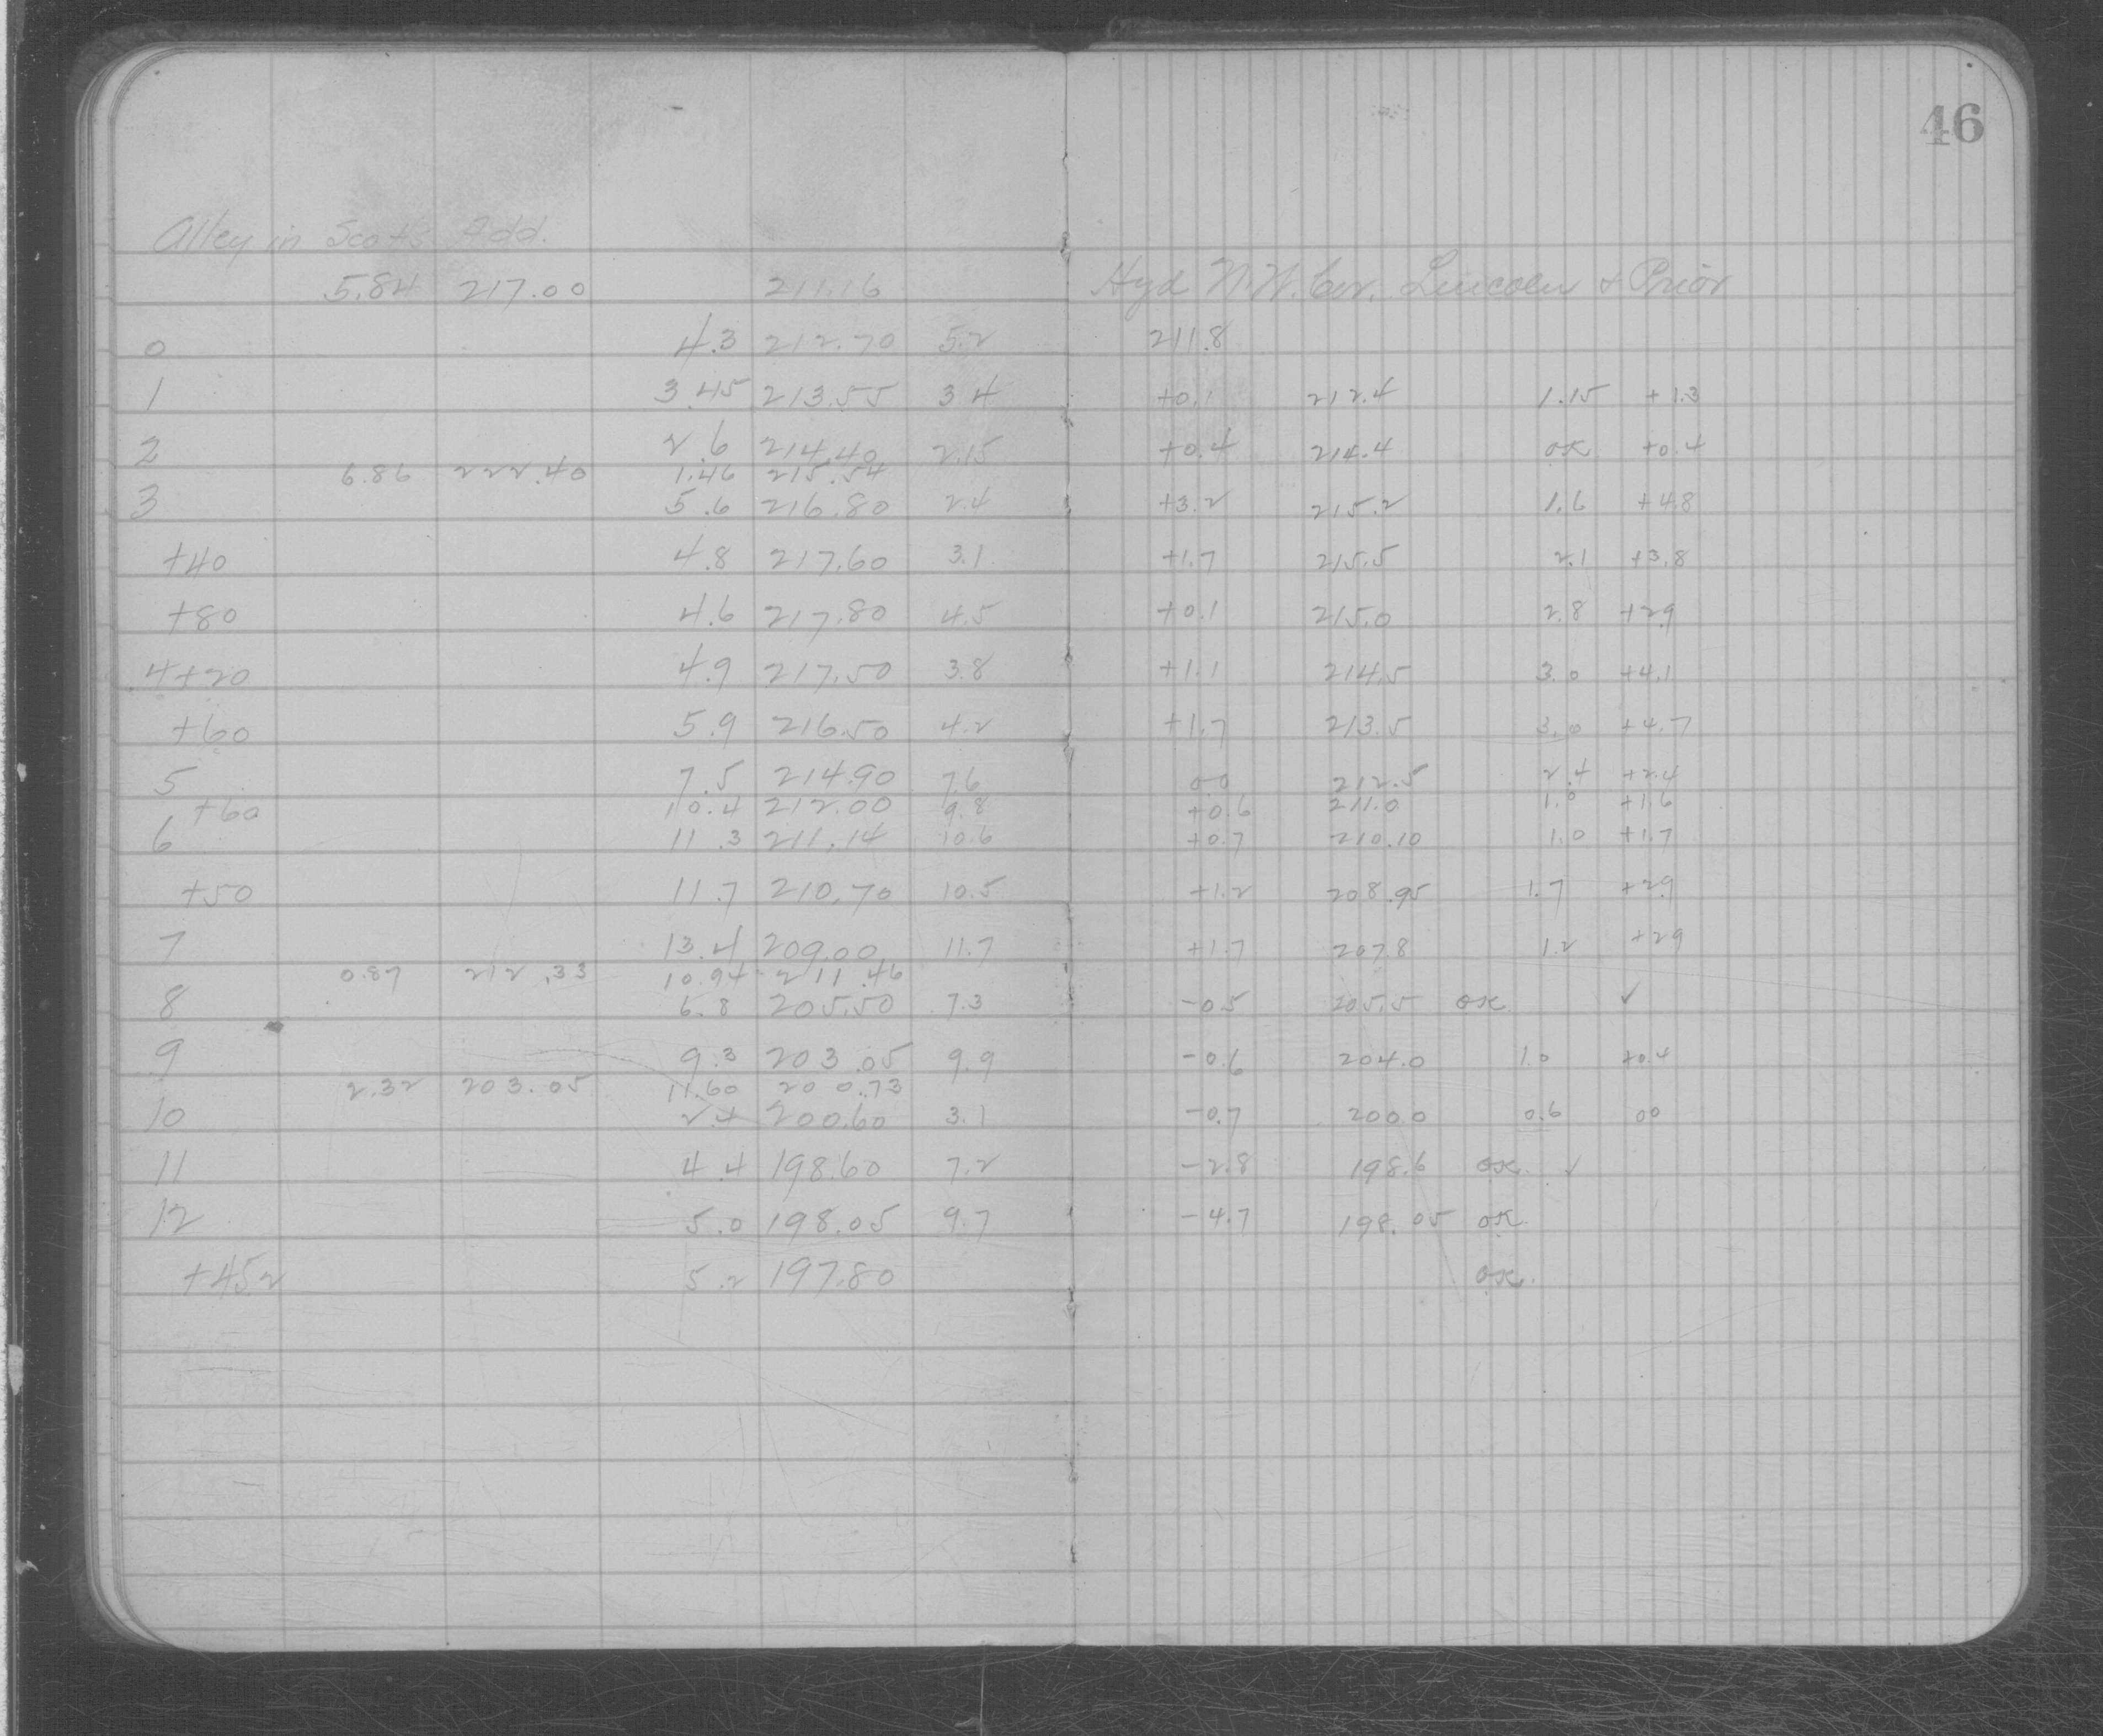 46
Alley in Scotts Add.
5.84 217.00 211.16 Hyd N.W. Cor. Lincoln & Prior
0 4.3 212.70 5.2 211.8
1 3.45 213.55 3.4 +0.1 212.4 1.15 +1.3
2 2.6 214.40 2.15 +0.4 214.4 OK +0.4
6.86 222.40 1.46 215.54
3 5.6 216.80 2.4 +3.2 215.2 1.6 +4.8
+40 4.8 217.60 3.1 +1.7 215.5 2.1 +3.8
+80 4.6 217.80 4.5 +0.1 215.0 2.8 +2.9
4+20 4.9 217.50 3.8 +1.1 214.5 3.0 +4.1
+60 5.9 216.50 4.2 +1.7 213.5 3.0 +4.7
5 7.5 214.90 7.6 00 212.5 2.4 +2.4
+60 10.4 212.00 9.8 +0.6 211.0 1.0 +1.6
6 11.3 211.14 10.6 +0.7 210.10 1.0 +1.7
+50 11.7 210.70 10.5 +1.2 208.95 1.7 +2.9
7 13.4 209.00 11.7 +1.7 207.8 1.2 +2.9
0.87 212.33 10.94 211.46
8 6.8 205.50 7.3 -0.5 205.5 OK ✓
9 9.3 203.05 9.9 -0.6 204.0 1.0 +0.4
2.32 203.05 11.60 200.73
10 2.4 200.60 3.1 -0.7 200.0 0.6 00
11 4.4 198.60 7.2 -2.8 198.6 OK ✓
12 5.0 198.05 9.7 -4.7 198.05 OK
+45.2 5.2 197.80 OK